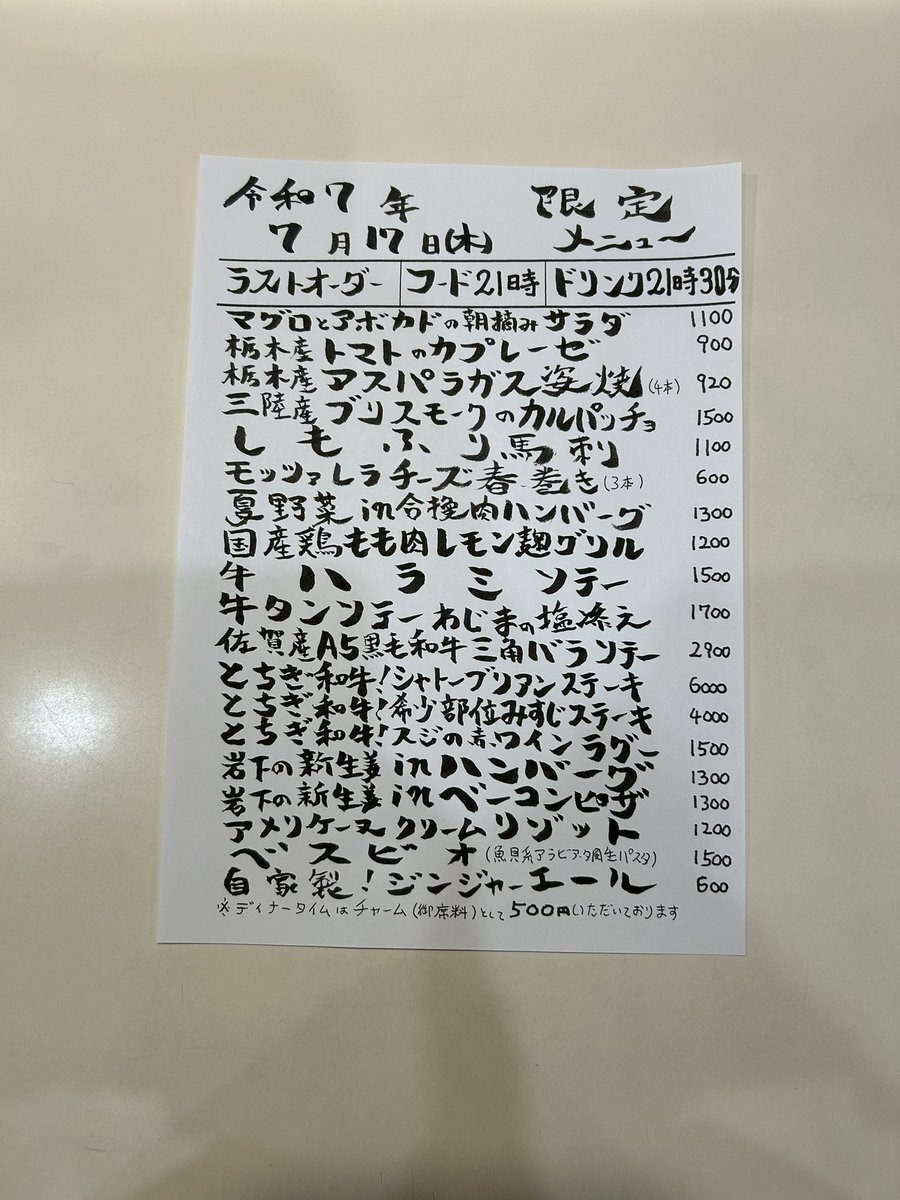 令和7年 限定
7月17日(木) メニュー
ラストオーダー フード21時 ドリンク21時30分
マグロとアボカドの朝摘みサラダ 1100
栃木産トマトのカプレーゼ 900
栃木産アスパラガス姿焼(4本) 920
三陸産ブリスモークのカルパッチョ 1500
しもふり馬刺 1100
モッツァレラチーズ春巻き(3本) 600
夏野菜in合挽肉ハンバーグ 1300
国産鶏もも肉レモン麹グリル 1200
牛ハラミソテー 1500
牛タンソテーわじまの塩添え 1700
佐賀産A5黒毛和牛三角バラソテー 2900
とちぎ和牛!シャトーブリアンステーキ 6000
とちぎ和牛!希少部位みすじステーキ 4000
とちぎ和牛!スジの赤ワインラグー 1500
岩下の新生姜inハンバーグ 1300
岩下の新生姜inベーコンピザ 1300
アメリケーヌクリームリゾット 1200
ベスビオ(魚貝系アラビアータ風生パスタ) 1500
自家製!ジンジャーエール 600
※ディナータイムはチャーム(御席料)として500円いただいております